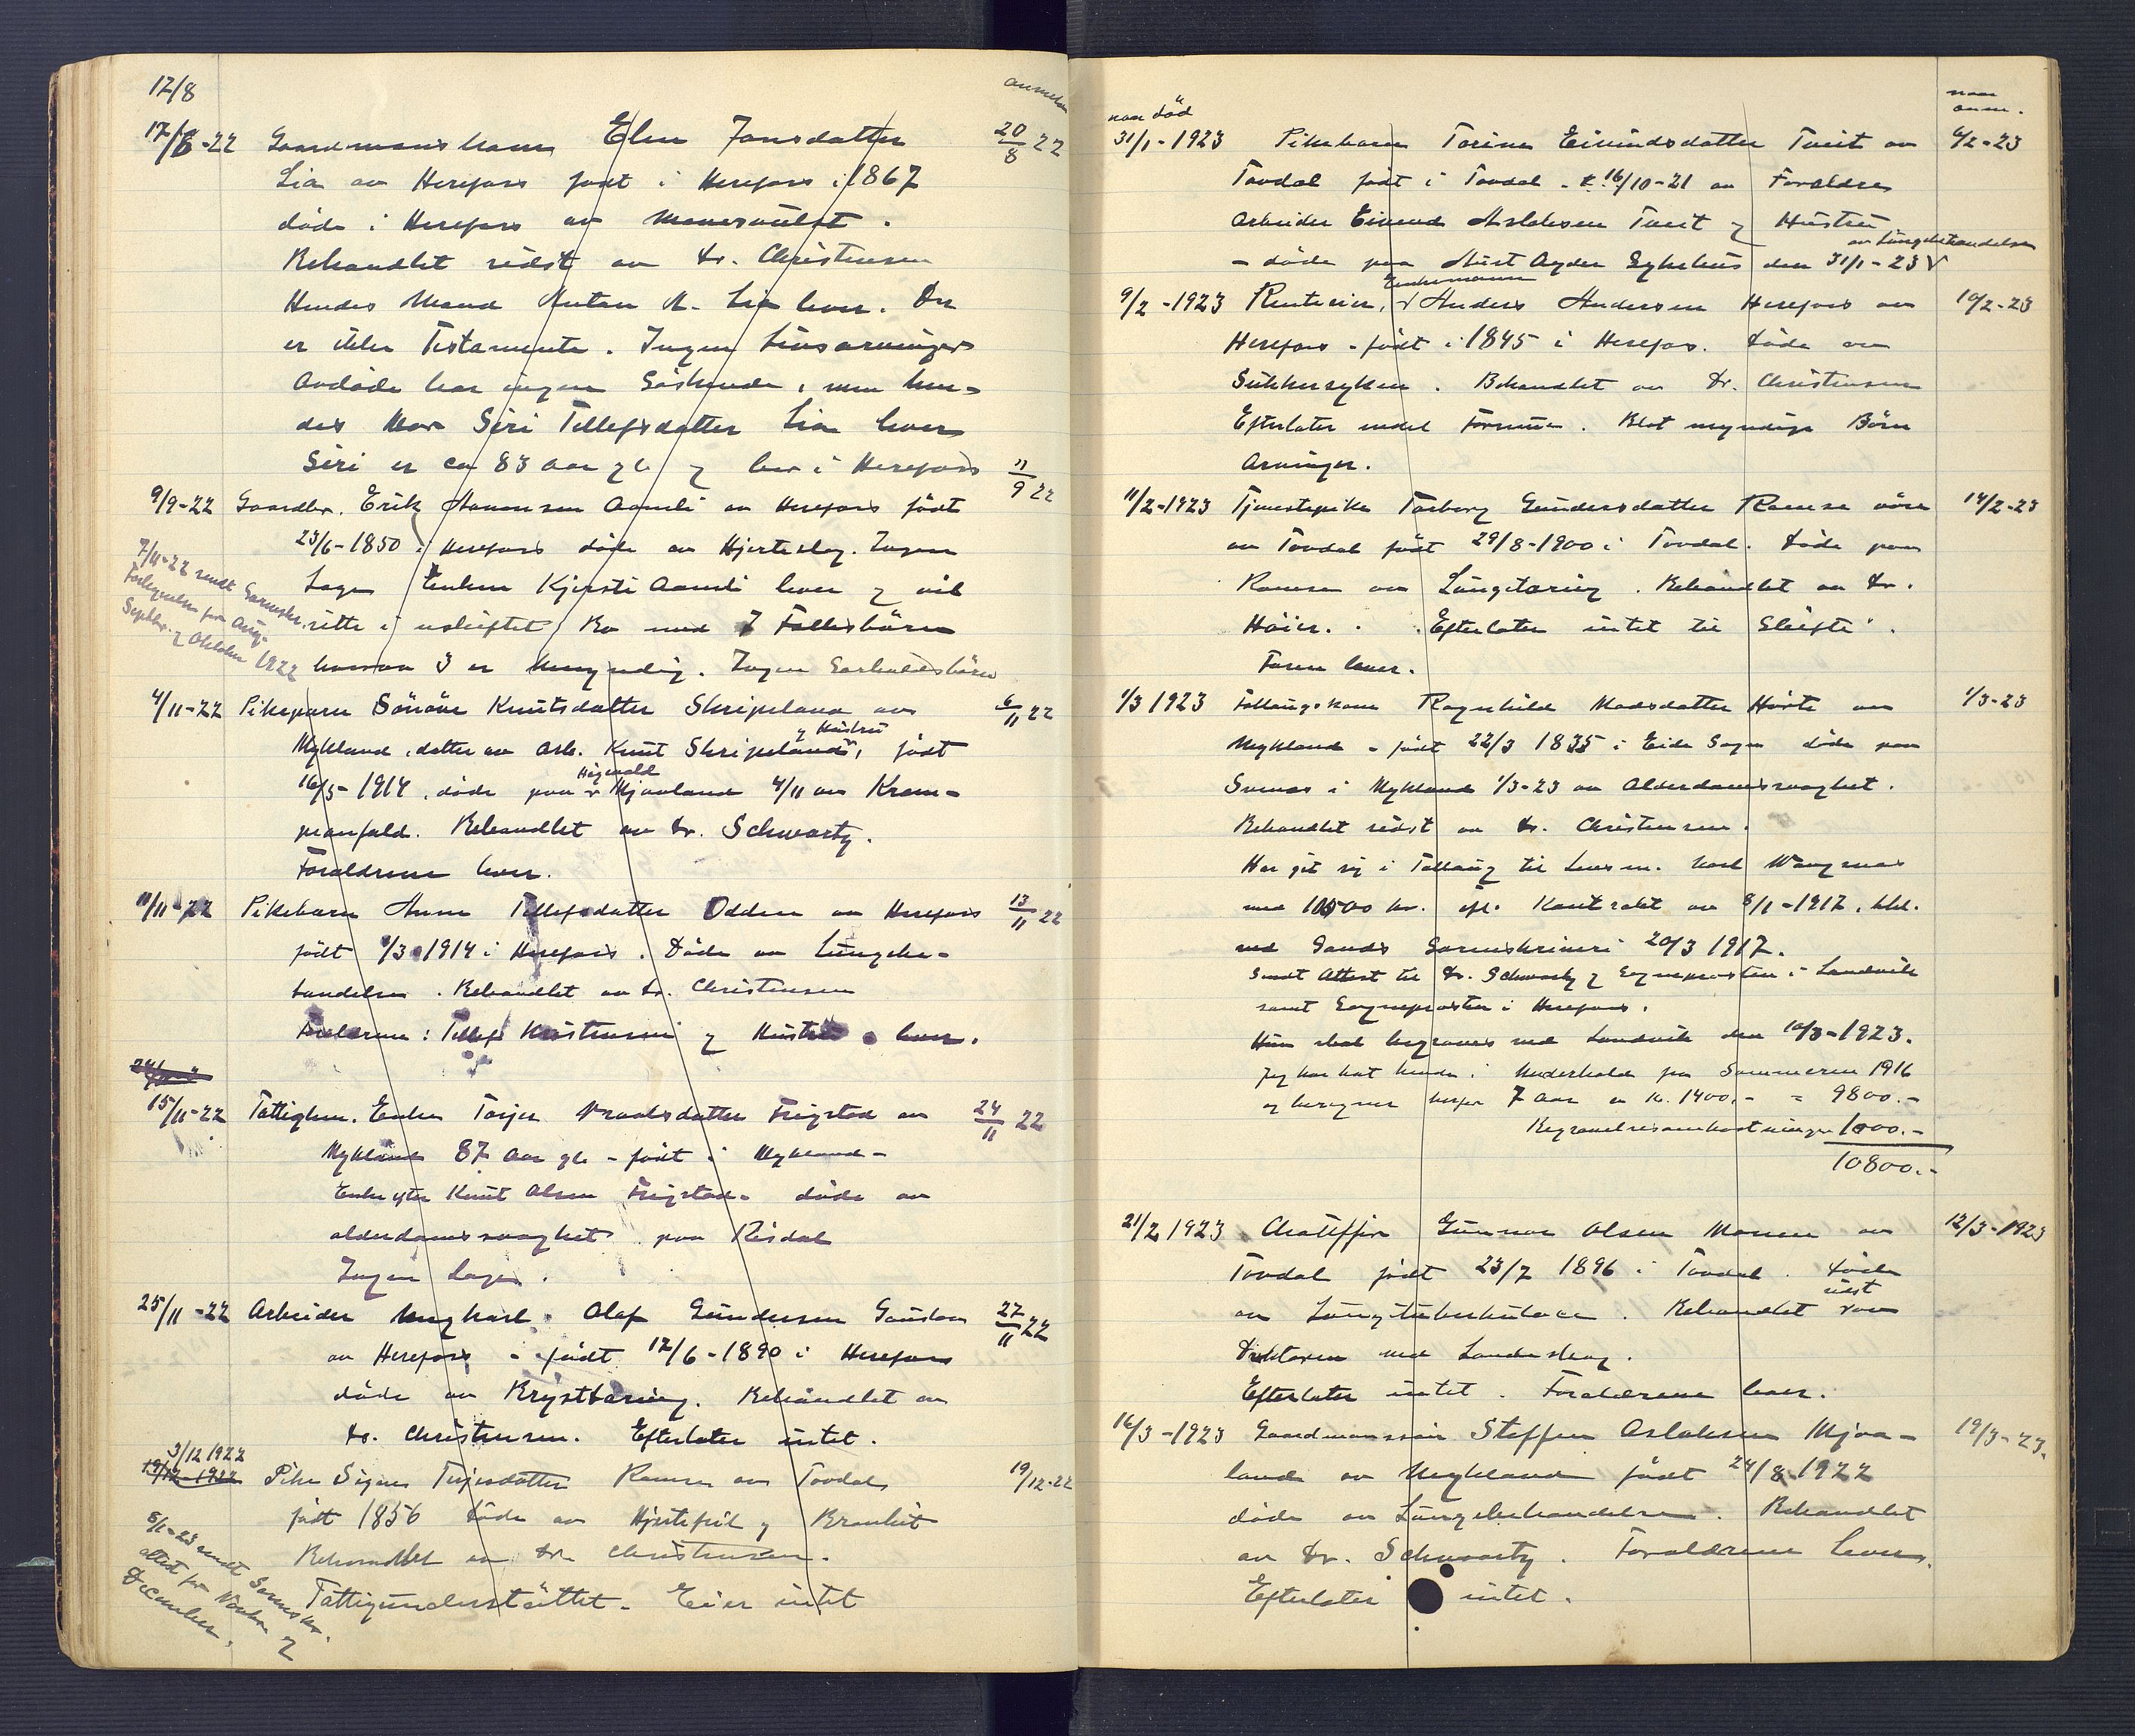 17/8
anmeldt
17/8-22 Gaardmandskone Elen Jonsdatter 20/8 22
Lia av Herefoss født i Herefoss i 1867
døde i Herefoss av
Behandlet sidst av Dr. Christensen
Hendes Mand Anton A. Lia lever. Der
er ikke Testamente. Ingen Livsarvinger
Avdøde har ingen Søskende, men hen-
des Mor Siri Tellefsdatter Lia lever
Siri er ca 83 aar gl. og bor i Herefoss 11/9 22
9/9-22 Gaardbr. Erik Aanonsen Aamli av Herefoss født
23/6-1850 i Herefoss døde av Hjerteslag. Ingen
Læge. Enken Kjersti Aamli lever og vil
7/11-22 sendt Sorenskr.
Fortegnelse for Aug.
Septbr. og Oktober 1922
sitte i uskiftet Bo med 7 Fællesbørn
hvorav 3 er umyndig. Ingen Særkuldsbørn
4/11-22 Pikebarn Sønøve Knutsdatter Skripeland av 6/11 22
og Hustru
Mykland, datter av Arb. Knut Skripeland, født
16/5-1914, døde paa Mjaaland 4/11 av Kram-
peanfald. Behandlet av Dr. Schwartz.
Forældrene lever.
11/11-22 Pikebarn Anne Tellefsdatter Odden av Herefoss 13/11 22
født /3 1914 i Herefoss. Døde av Lungebe-
tændelse. Behandlet av Dr. Christensen
Forældrene: Tellef Kristensen og Hustru lever.
15/11-22 Fattiglem. Enke Torjer Vraalsdatter Frigstad av 24/11 22
Mykland 87 Aar gl. - født i Mykland -
Enke efter Knut Olsen Frigstad - døde av
alderdomssvaghet paa Risdal
Ingen Læge.
25/11-22 Arbeider Ungkarl. Olaf Gundersen Gauslaa 27/11 22
av Herefoss - født 12/6-1890 i Herefoss
døde av Brysttæring. Behandlet av
Dr. Christensen. Efterlater intet.
3/12 1922
19/12-1922 Pike Signe Terjesdatter Ramse av Tovdal 19/12-22
født 1856 døde av Hjertefeil og Bronkit
Behandlet av Dr. Christensen.
Fattigunderstøttet. Eier intet
5/1-23 sendt Sorenskr.
attest for Novbr. og
December.
naar død
naar anm.
31/1-1923 Pikebarn Torine Eivindsdatter Tveit av 6/2-23
Tovdal født i Tovdal - 16/10-21 av Forældre
Arbeider Eivind Aslaksen Tveit og Hustru
av Lungebetændelse
- døde paa Aust Agder Sykehus den 31/1-23
Enkemann
9/2-1923 Rentier, Anders Andersen Herefoss av 10/2-23
Herefoss - født i 1845 i Herefoss. Døde av
Sukkersyken. Behandlet av Dr. Christensen
Efterlater endel Formue. Blot myndige Børn
Arvinger.
11/2-1923 Tjenestepike Torborg Gundersdatter Ramse øvre 14/2-23
av Tovdal født 29/8-1900 i Tovdal. Døde paa
Ramse av Lungetæring. Behandlet av Dr.
Høier. Efterlater intet til Skifte.
Faren lever.
1/3 1923 Føllaugskone Ragnhild Madsdatter Hørte av 1/3-23
Mykland - født 22/3 1835 i Eide Sogn døde paa
Svenes i Mykland 1/3-23 av Alderdomssvaghet.
Behandlet sidst av Dr. Christensen.
Har git sig i Føllaug til Lensm. Karl Wangsnes
med 10500 kr. ifl. Kontrakt av 8/1-1917, thl.
ved Sands Sorenskriveri 20/3 1917.
Sendt Attest til Dr. Schwartz og Sogneprosten i Landvik
samt Sogneprosten i Herefoss.
Hun skal begraves ved Landvik den 10/3-1923.
Jeg har hat hende i Underhold fra Sommeren 1916
og beregner herfor 7 Aar a kr. 1400.- = 9800.-
Begravelsesomkostninger 1000.-
10800.-
21/2 1923 Chauffør Gunnar Olsen Moen av 12/3-1923
Tovdal født 23/7 1896 i Tovdal. Døde
sidst
av Lungetuberkulose. Behandlet
Doktoren ved Landeskog.
Efterlater intet. Forældrene lever.
16/3-1923 Gaardmannssøn Steffen Aslaksen Mjaa- 19/3-23.
land av Mykland født 24/8 1922
døde av Lungebetændelse. Behandlet
av Dr. Schwartz. Forældrene lever.
Efterlater intet.